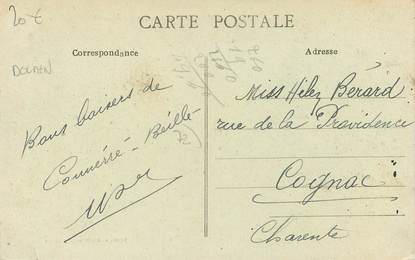 20 €
CARTE POSTALE
Correspondance
Adresse
DOLMEN
Bons baisers de
Connerré-Beillé
72
Miss Hélez Bérard
rue de la Providence
Cognac
Charente